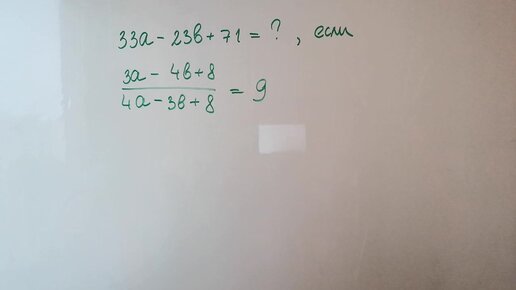 33a - 23b + 71 = ? , если
3a - 4b + 8
4a - 3b + 8 = 9